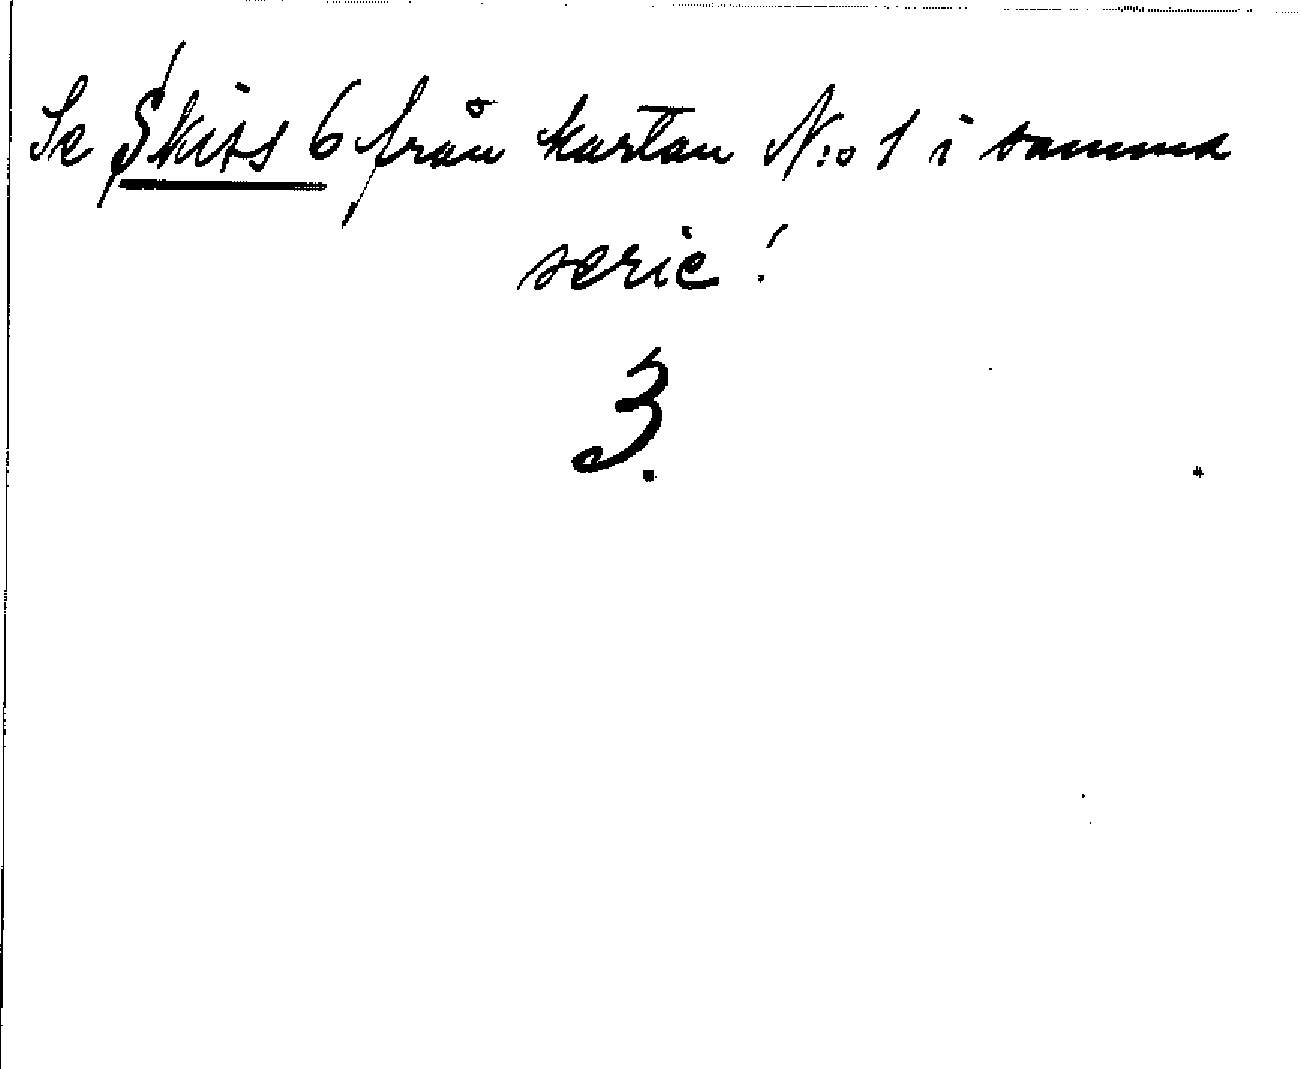 Se Skiss 6 från kartan N:o 1 i samma
serie!
3.